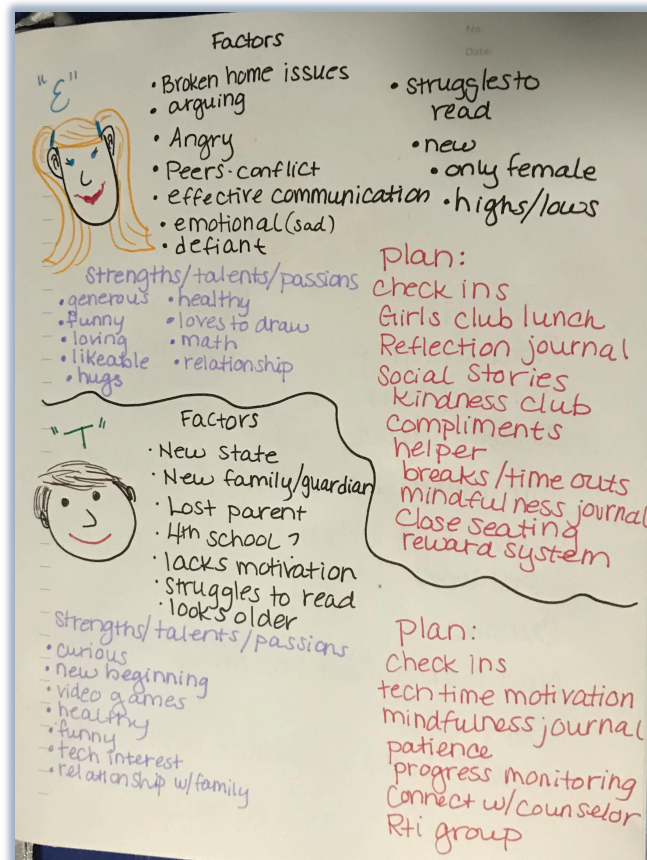 No.
Date
Factors
"E"
• Broken home issues
• arguing
• Angry
• Peers-conflict
• effective communication
• emotional (sad)
• defiant
• struggles to
read
• new
• only female
• highs/lows
Strengths/talents/passions
• generous
• funny
• loving
• likeable
• hugs
• healthy
• loves to draw
• math
• relationship
plan:
check ins
Girls club lunch
Reflection journal
Social Stories
kindness club
compliments
helper
breaks/time outs
mindfulness journal
close seating
reward system
"T"
Factors
• New state
• New family/guardian
• Lost parent
• 4th school ?
• lacks motivation
• Struggles to read
• looks older
Strengths/talents/passions
• curious
• new beginning
• video games
• healthy
• funny
• tech interest
• relationship w/family
plan:
check ins
tech time motivation
mindfulness journal
patience
progress monitoring
Connect w/counselor
Rti group